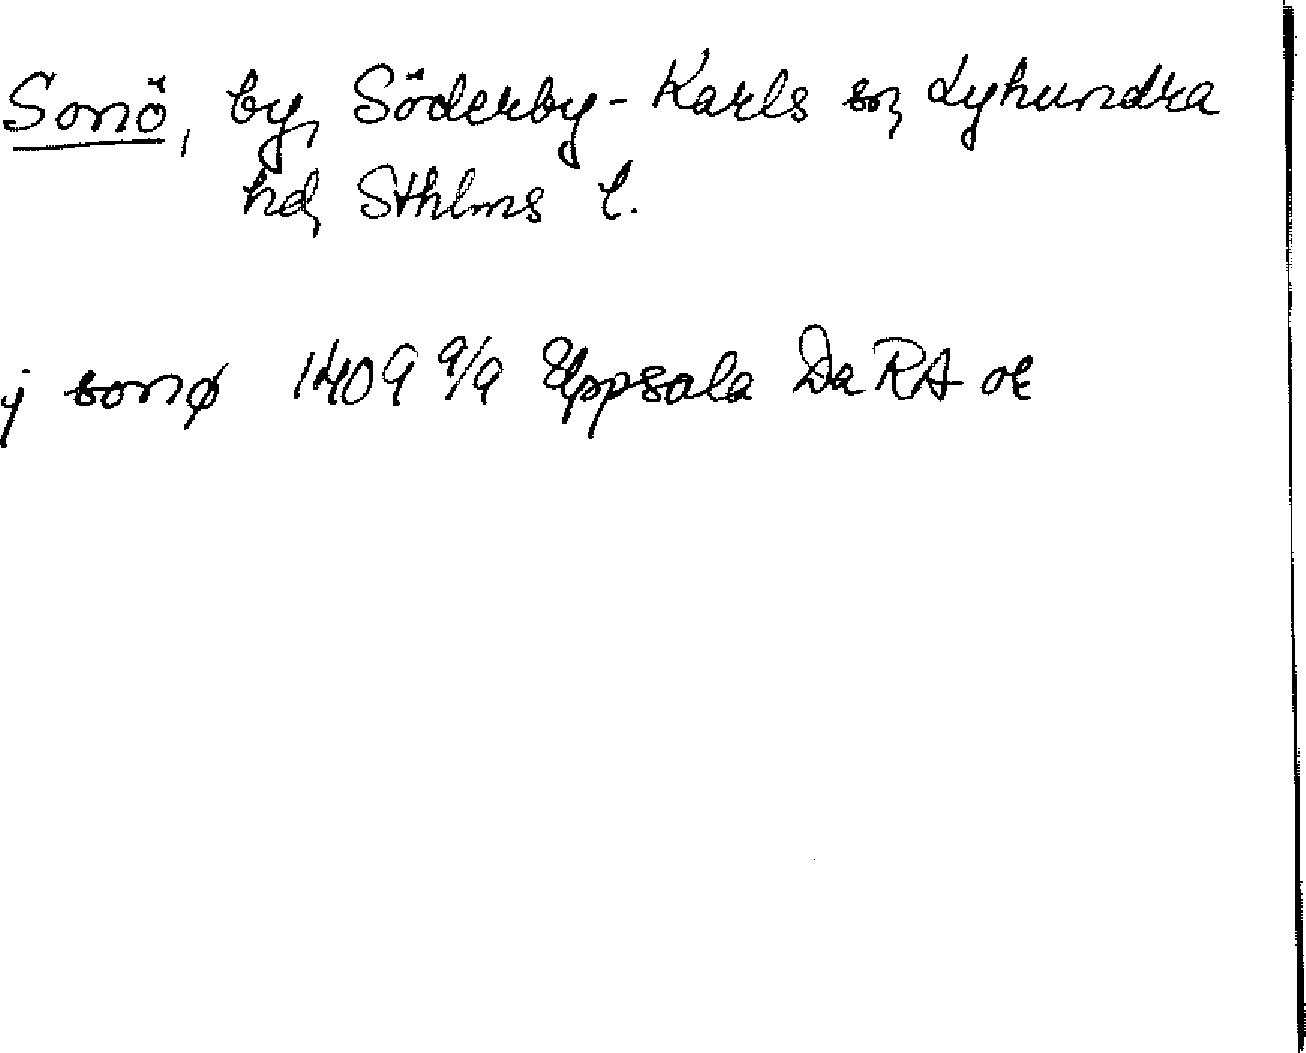 Sonö, by, Söderby-Karls sn, Lyhundra
hd, Sthlms l.
j sonø 1409 9/9 Uppsala Da RA or